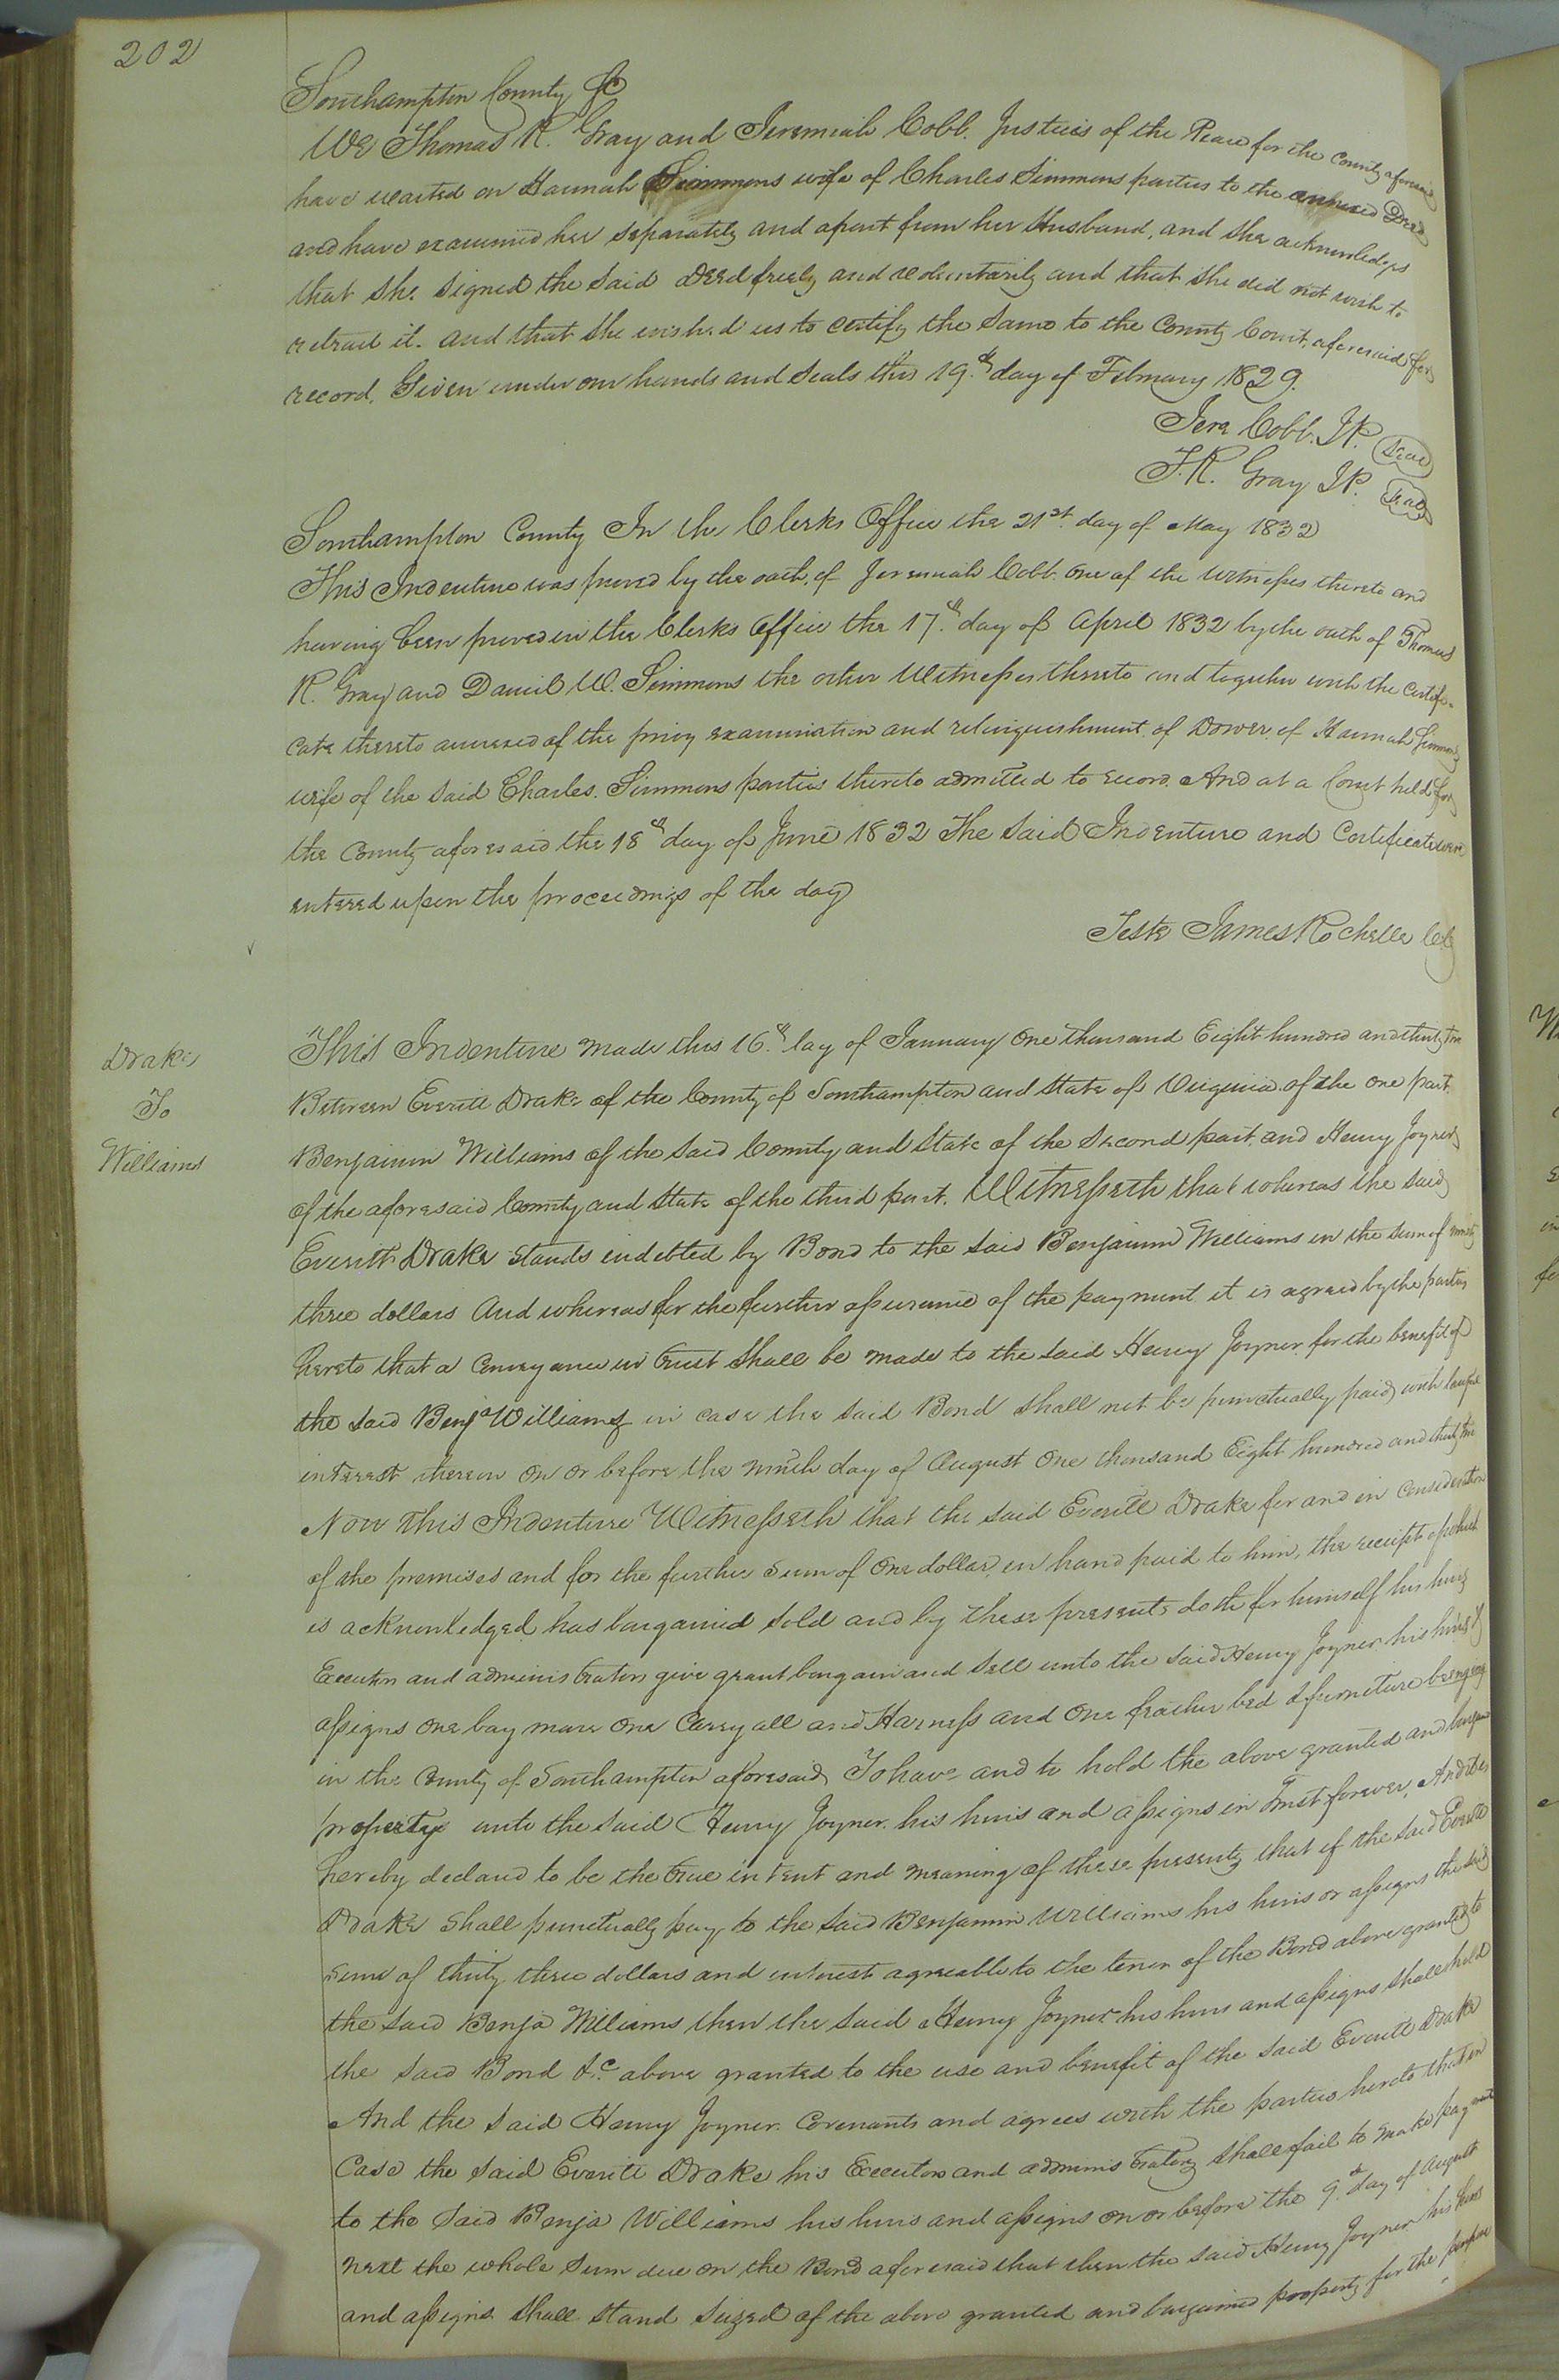 202
Southampton County Sc
We Thomas R. Gray and Jeremiah Cobb. Justices of the Peace for the County aforesaid
have waited on Hannah Simmons wife of Charles Simmons parties to the annexed Deed
and have examined her separately and apart from her Husband, and she acknowledges
that she signed the said Deed freely and voluntarily and that she did not wish to
retract it. and that she wished us to certify the same to the County Court, aforesaid for
record. Given under our hands and seals this 19.th day of February 1829.
Jere Cobb. J.P. Seal
T.R. Gray J.P. Seal
Southampton County In the Clerks Office the 21st. day of May 1832
This Indenture was proved by the oath, of Jeremiah Cobb. one of the Witnesses thereto and
having been proved in the Clerks Office the 17.th day of April 1832 by the oath of Thomas
R. Gray and Daniel W. Simmons the other Witnesses thereto and together with the Certifi-
cate thereto annexed of the privy examination and relinquishment, of Dower, of Hannah Simmons
wife of the said Charles. Simmons parties thereto admitted to record. And at a Court held for
the County aforesaid the 18th day of June 1832 The said Indenture and Certificate were
entered upon the proceedings of the day
Teste James Rochelle
Drake
To
Williams
This Indenture made this 16.th day of January One thousand Eight hundred and thirty two
Between Everitt Drake of the County of Southampton and State of Virginia. of the one part
Benjamin Williams of the said County and State of the second part. and Henry Joyner
of the aforesaid County and State of the third part. Witnesseth that whereas the said
Everitt Drake stands indebted by Bond to the said Benjamin Williams in the sum of
three dollars And whereas for the further assurance of the payment it is agreed by the parties
hereto that a Conveyance in trust shall be made to the said Henry Joyner. for the benefit of
the said Benja Williams in case the said Bond shall not be punctually paid with lawful
interest thereon on or before the ninth day of August One thousand Eight hundred and thirty two
Now this Indenture Witnesseth that the said Everitt Drake for and in consideration
of the premises and for the further sum of one dollar, in hand paid to him, the receipt of which
is acknowledged, has bargained sold and by these presents doth for himself his heirs
Executors and administrators give grant bargain and sell unto the said Henry Joyner his heirs &
assigns one bay mare one Carryall and Harness and One feather bed & furniture being
in the County of Southampton aforesaid, To have and to hold the above granted and bargained
property unto the said Henry Joyner. his heirs and assigns in Trust forever, And it is
hereby declared to be the true intent and meaning of these presents, that if the said Everitt
Drake shall punctually pay, to the said Benjamin Williams his heirs or assigns the said
sum of thirty three dollars and interest agreeable to the tenor of the Bond above granted to
the said Benja Williams then the said Henry Joyner his heirs and assigns shall hold
the said Bond &c above granted to the use and benefit of the said Everitt Drake
And the said Henry Joyner. Covenants and agrees with the parties hereto that in
Case the said Everitt Drake his Executors and administrators shall fail to make payment
to the said Benja Williams his heirs and assigns on or before the 9.th day of August
next the whole sum due on the Bond aforesaid that then the said Henry Joyner his heirs
and assigns shall stand seized of the above granted and bargained property for the purpose